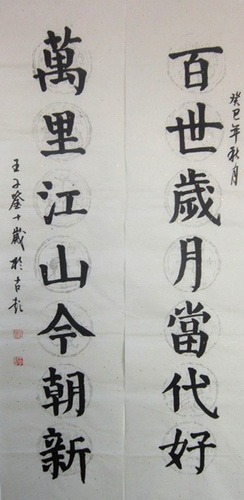 癸巳年秋月
百世歲月當代好
萬里江山今朝新
王子鑒十歲於吉彭